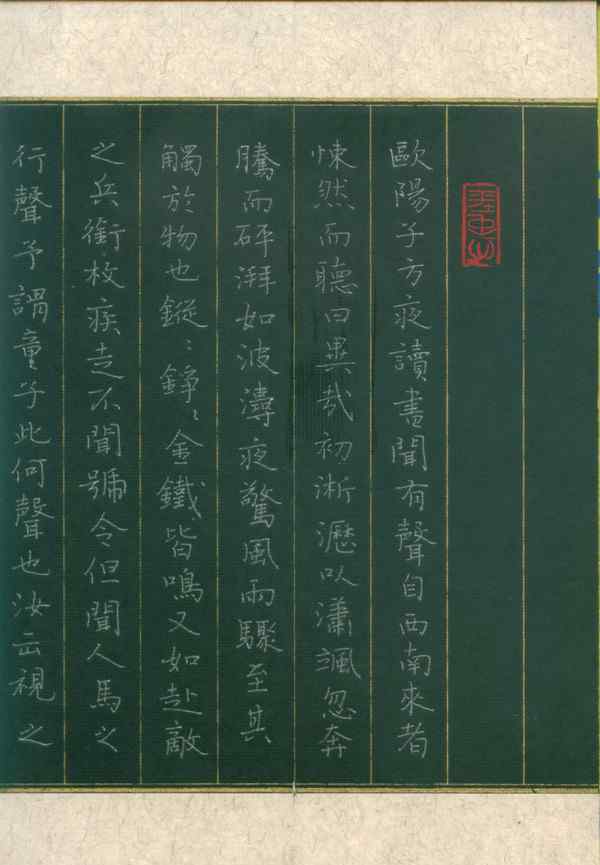 歐陽子方夜讀書聞有聲自西南來者
悚然而聽曰異哉初淅瀝以瀟颯忽奔
騰而砰湃如波濤夜驚風雨驟至其
觸於物也鏦〻錚〻金鐵皆鳴又如赴敵
之兵銜枚疾走不聞號令但聞人馬之
行聲予謂童子此何聲也汝出視之